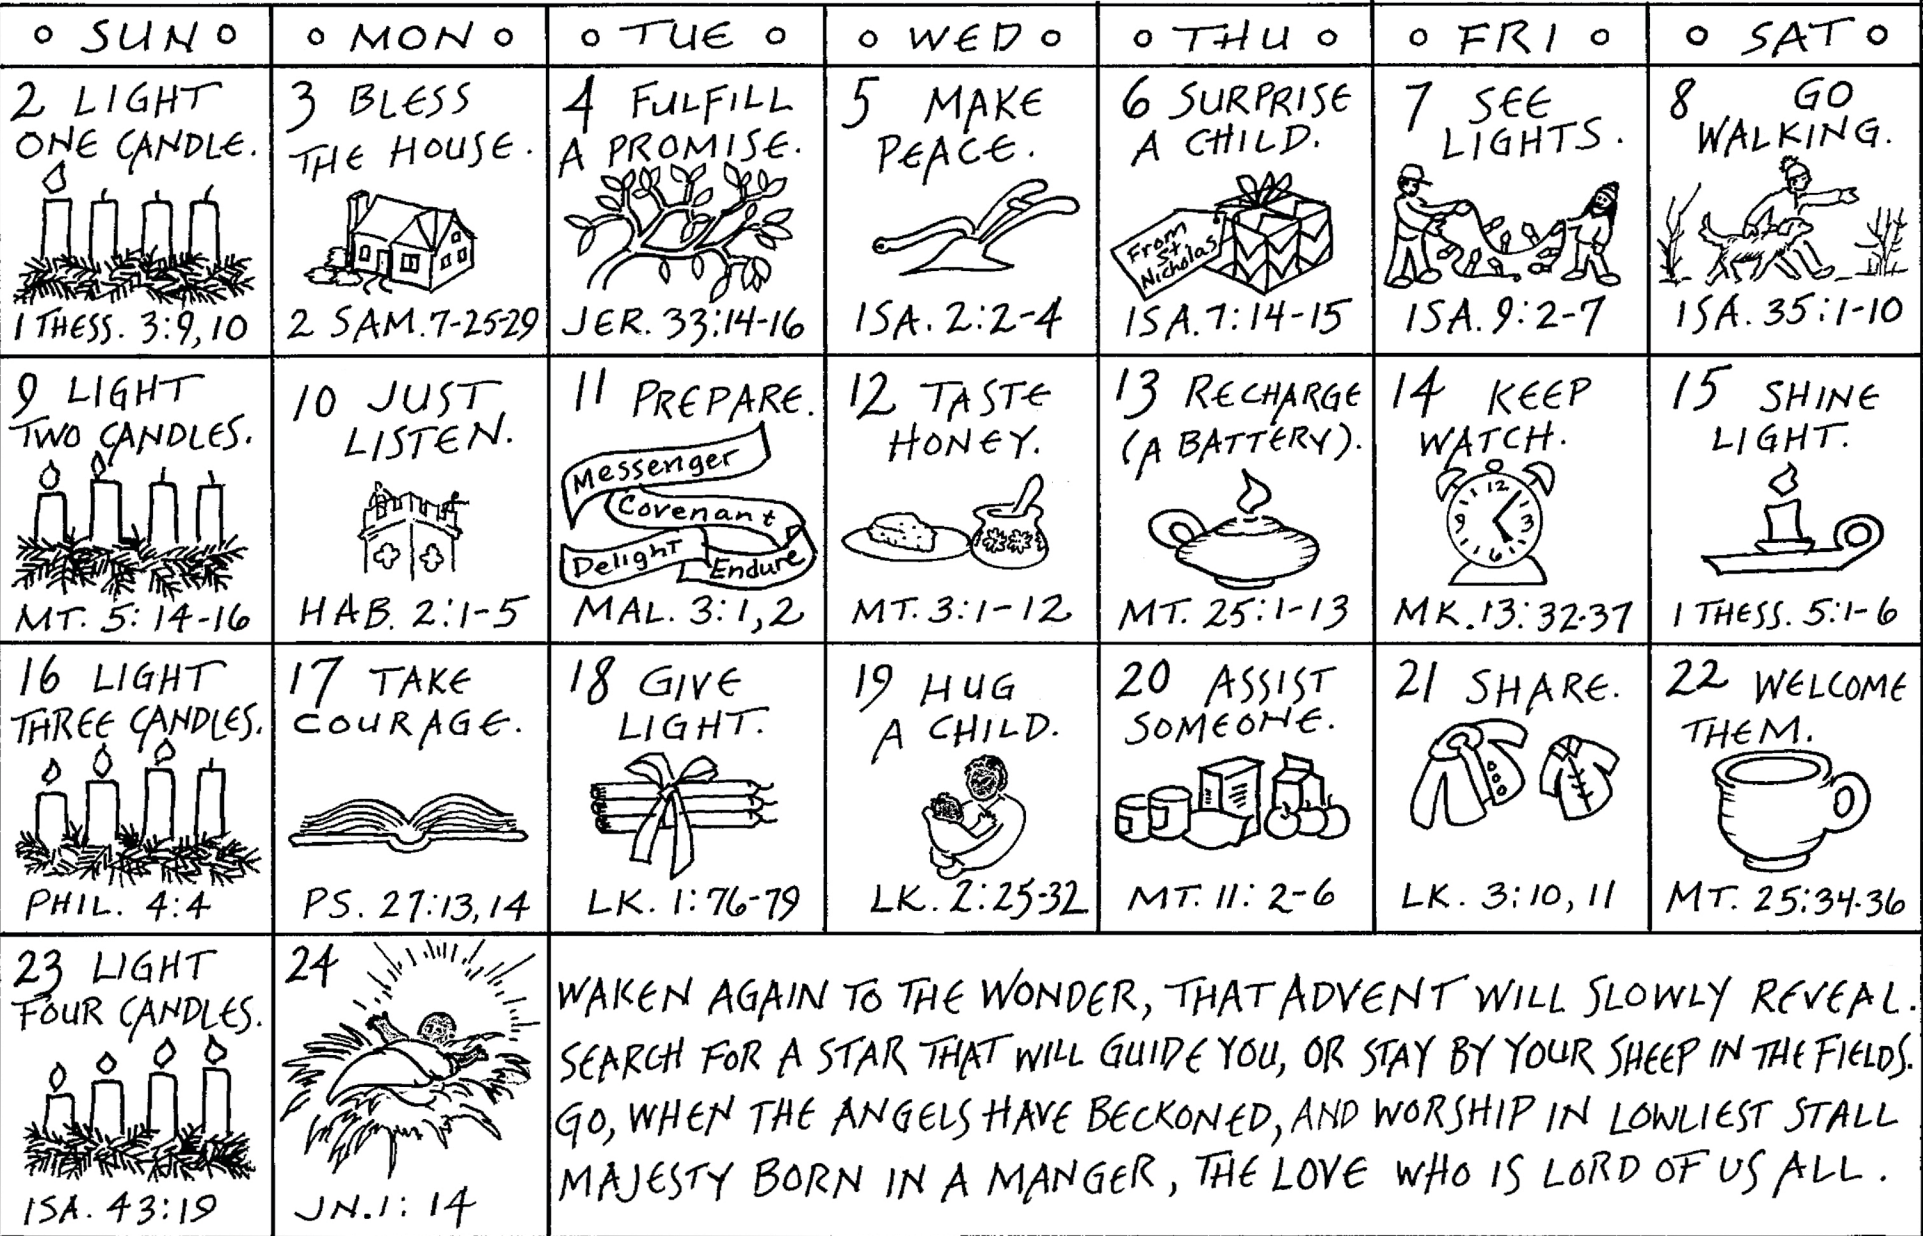 o SUN o
o MON o
o TUE o
o WED o
o THU o
o FRI o
o SAT o
2 LIGHT
ONE CANDLE.
1 THESS. 3:9,10
3 BLESS
THE HOUSE.
2 SAM.7-25-29
4 FULFILL
A PROMISE.
JER. 33:14-16
5 MAKE
PEACE.
ISA. 2:2-4
6 SURPRISE
A CHILD.
From
St
Nicholas
ISA.7:14-15
7 SEE
LIGHTS.
ISA. 9:2-7
8 GO
WALKING.
ISA. 35:1-10
9 LIGHT
TWO CANDLES.
MT. 5:14-16
10 JUST
LISTEN.
HAB. 2:1-5
11 PREPARE.
Messenger
Covenant
Delight
Endure
MAL. 3:1,2
12 TASTE
HONEY.
MT. 3:1-12
13 RECHARGE
(A BATTERY).
MT. 25:1-13
14 KEEP
WATCH.
12
9 3
6
MK.13:32-37
15 SHINE
LIGHT.
1 THESS. 5:1-6
16 LIGHT
THREE CANDLES.
PHIL. 4:4
17 TAKE
COURAGE.
PS. 27:13,14
18 GIVE
LIGHT.
LK. 1:76-79
19 HUG
A CHILD.
LK. 2:25-32
20 ASSIST
SOMEONE.
MT. 11:2-6
21 SHARE.
LK. 3:10,11
22 WELCOME
THEM.
MT. 25:34-36
23 LIGHT
FOUR CANDLES.
ISA. 43:19
24
JN.1:14
WAKEN AGAIN TO THE WONDER, THAT ADVENT WILL SLOWLY REVEAL.
SEARCH FOR A STAR THAT WILL GUIDE YOU, OR STAY BY YOUR SHEEP IN THE FIELDS.
GO, WHEN THE ANGELS HAVE BECKONED, AND WORSHIP IN LOWLIEST STALL
MAJESTY BORN IN A MANGER, THE LOVE WHO IS LORD OF US ALL.